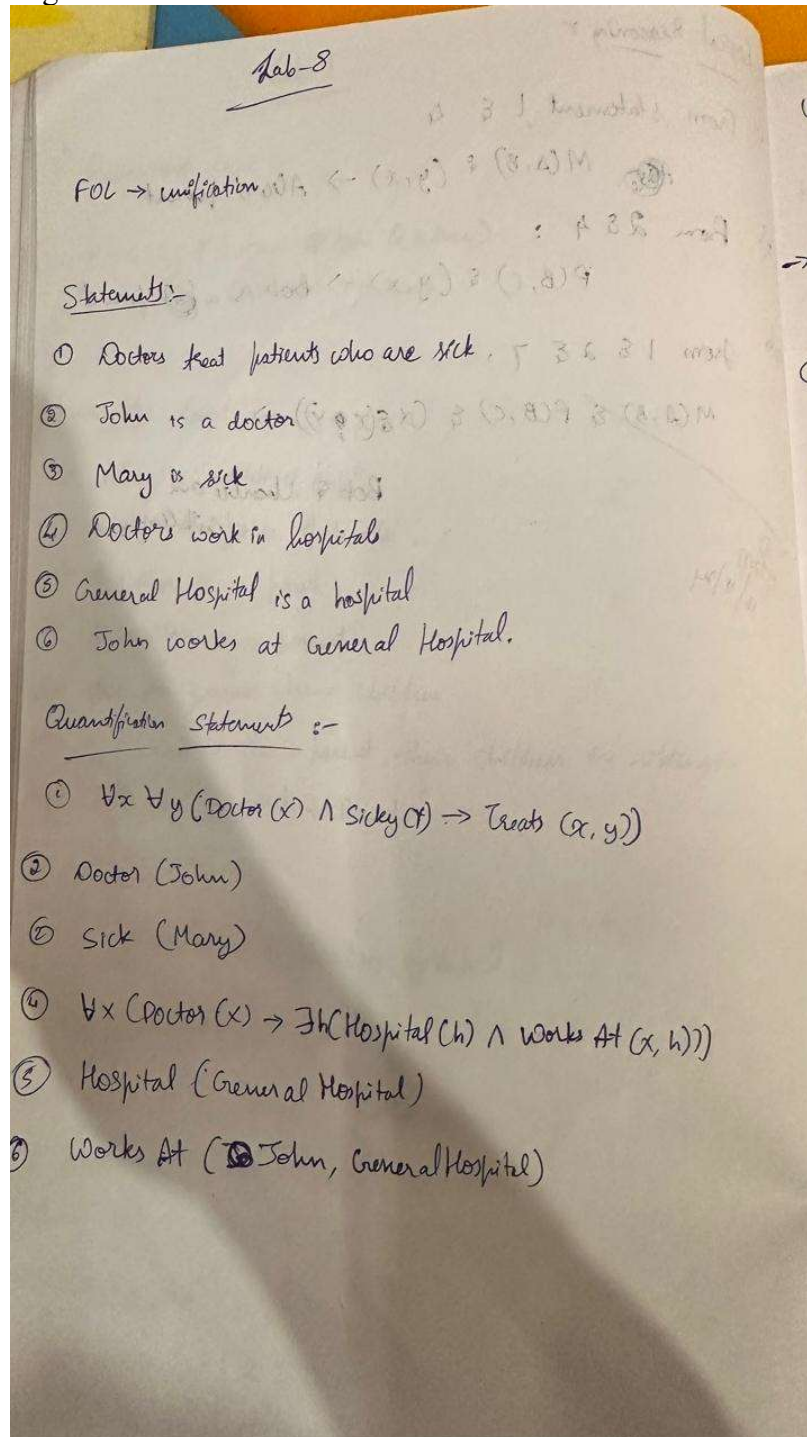 Lab-8
FOL → unification
Statements :-
① Doctors treat patients who are sick.
② John is a doctor
③ Mary is sick
④ Doctors work in hospitals
⑤ General Hospital is a hospital
⑥ John works at General Hospital.
Quantification Statements :-
① ∀x ∀y (Doctor (x) ∧ Sicky (Y) → Treats (x, y))
② Doctor (John)
② Sick (Mary)
④ ∀x (Doctor (x) → ∃h (Hospital (h) ∧ Works At (x, h)))
⑤ Hospital (General Hospital)
⑥ Works At (John, General Hospital)